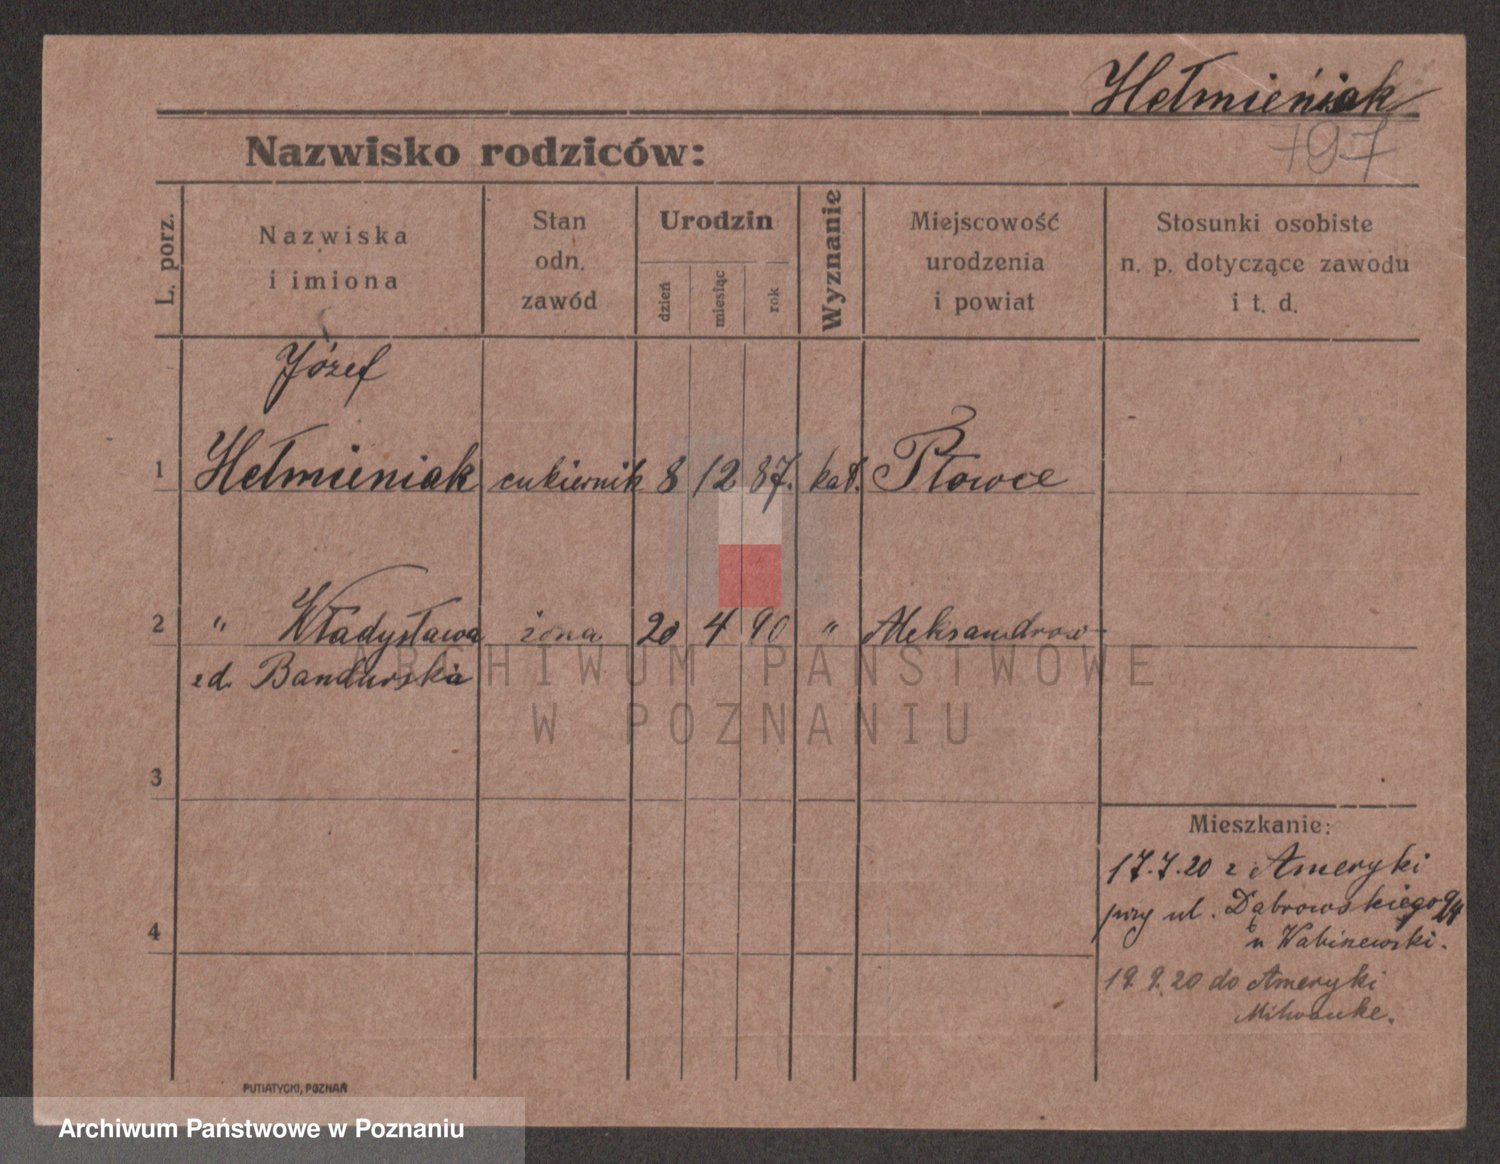 Hełmieniak
797
Nazwisko rodziców:
L. porz.
Nazwiska
i imiona
Stan
odn.
zawód
Urodzin
dzień
miesiąc
rok
Wyznanie
Miejscowość
urodzenia
i powiat
Stosunki osobiste
n. p. dotyczące zawodu
i t. d.
Józef
1 Hełmieniak cukiernik 8 12 87. kat. Płowce
2 " Władysława żona 20 4 90 " Aleksandrow
zd. Bandurska
ARCHIWUM PAŃSTWOWE
W POZNANIU
3
4
Mieszkanie:
17.7.20 z Ameryki
przy ul. Dąbrowskiego
19.9.20 do Ameryki
Milwauke.
PUTIATYCKI, POZNAŃ
Archiwum Państwowe w Poznaniu